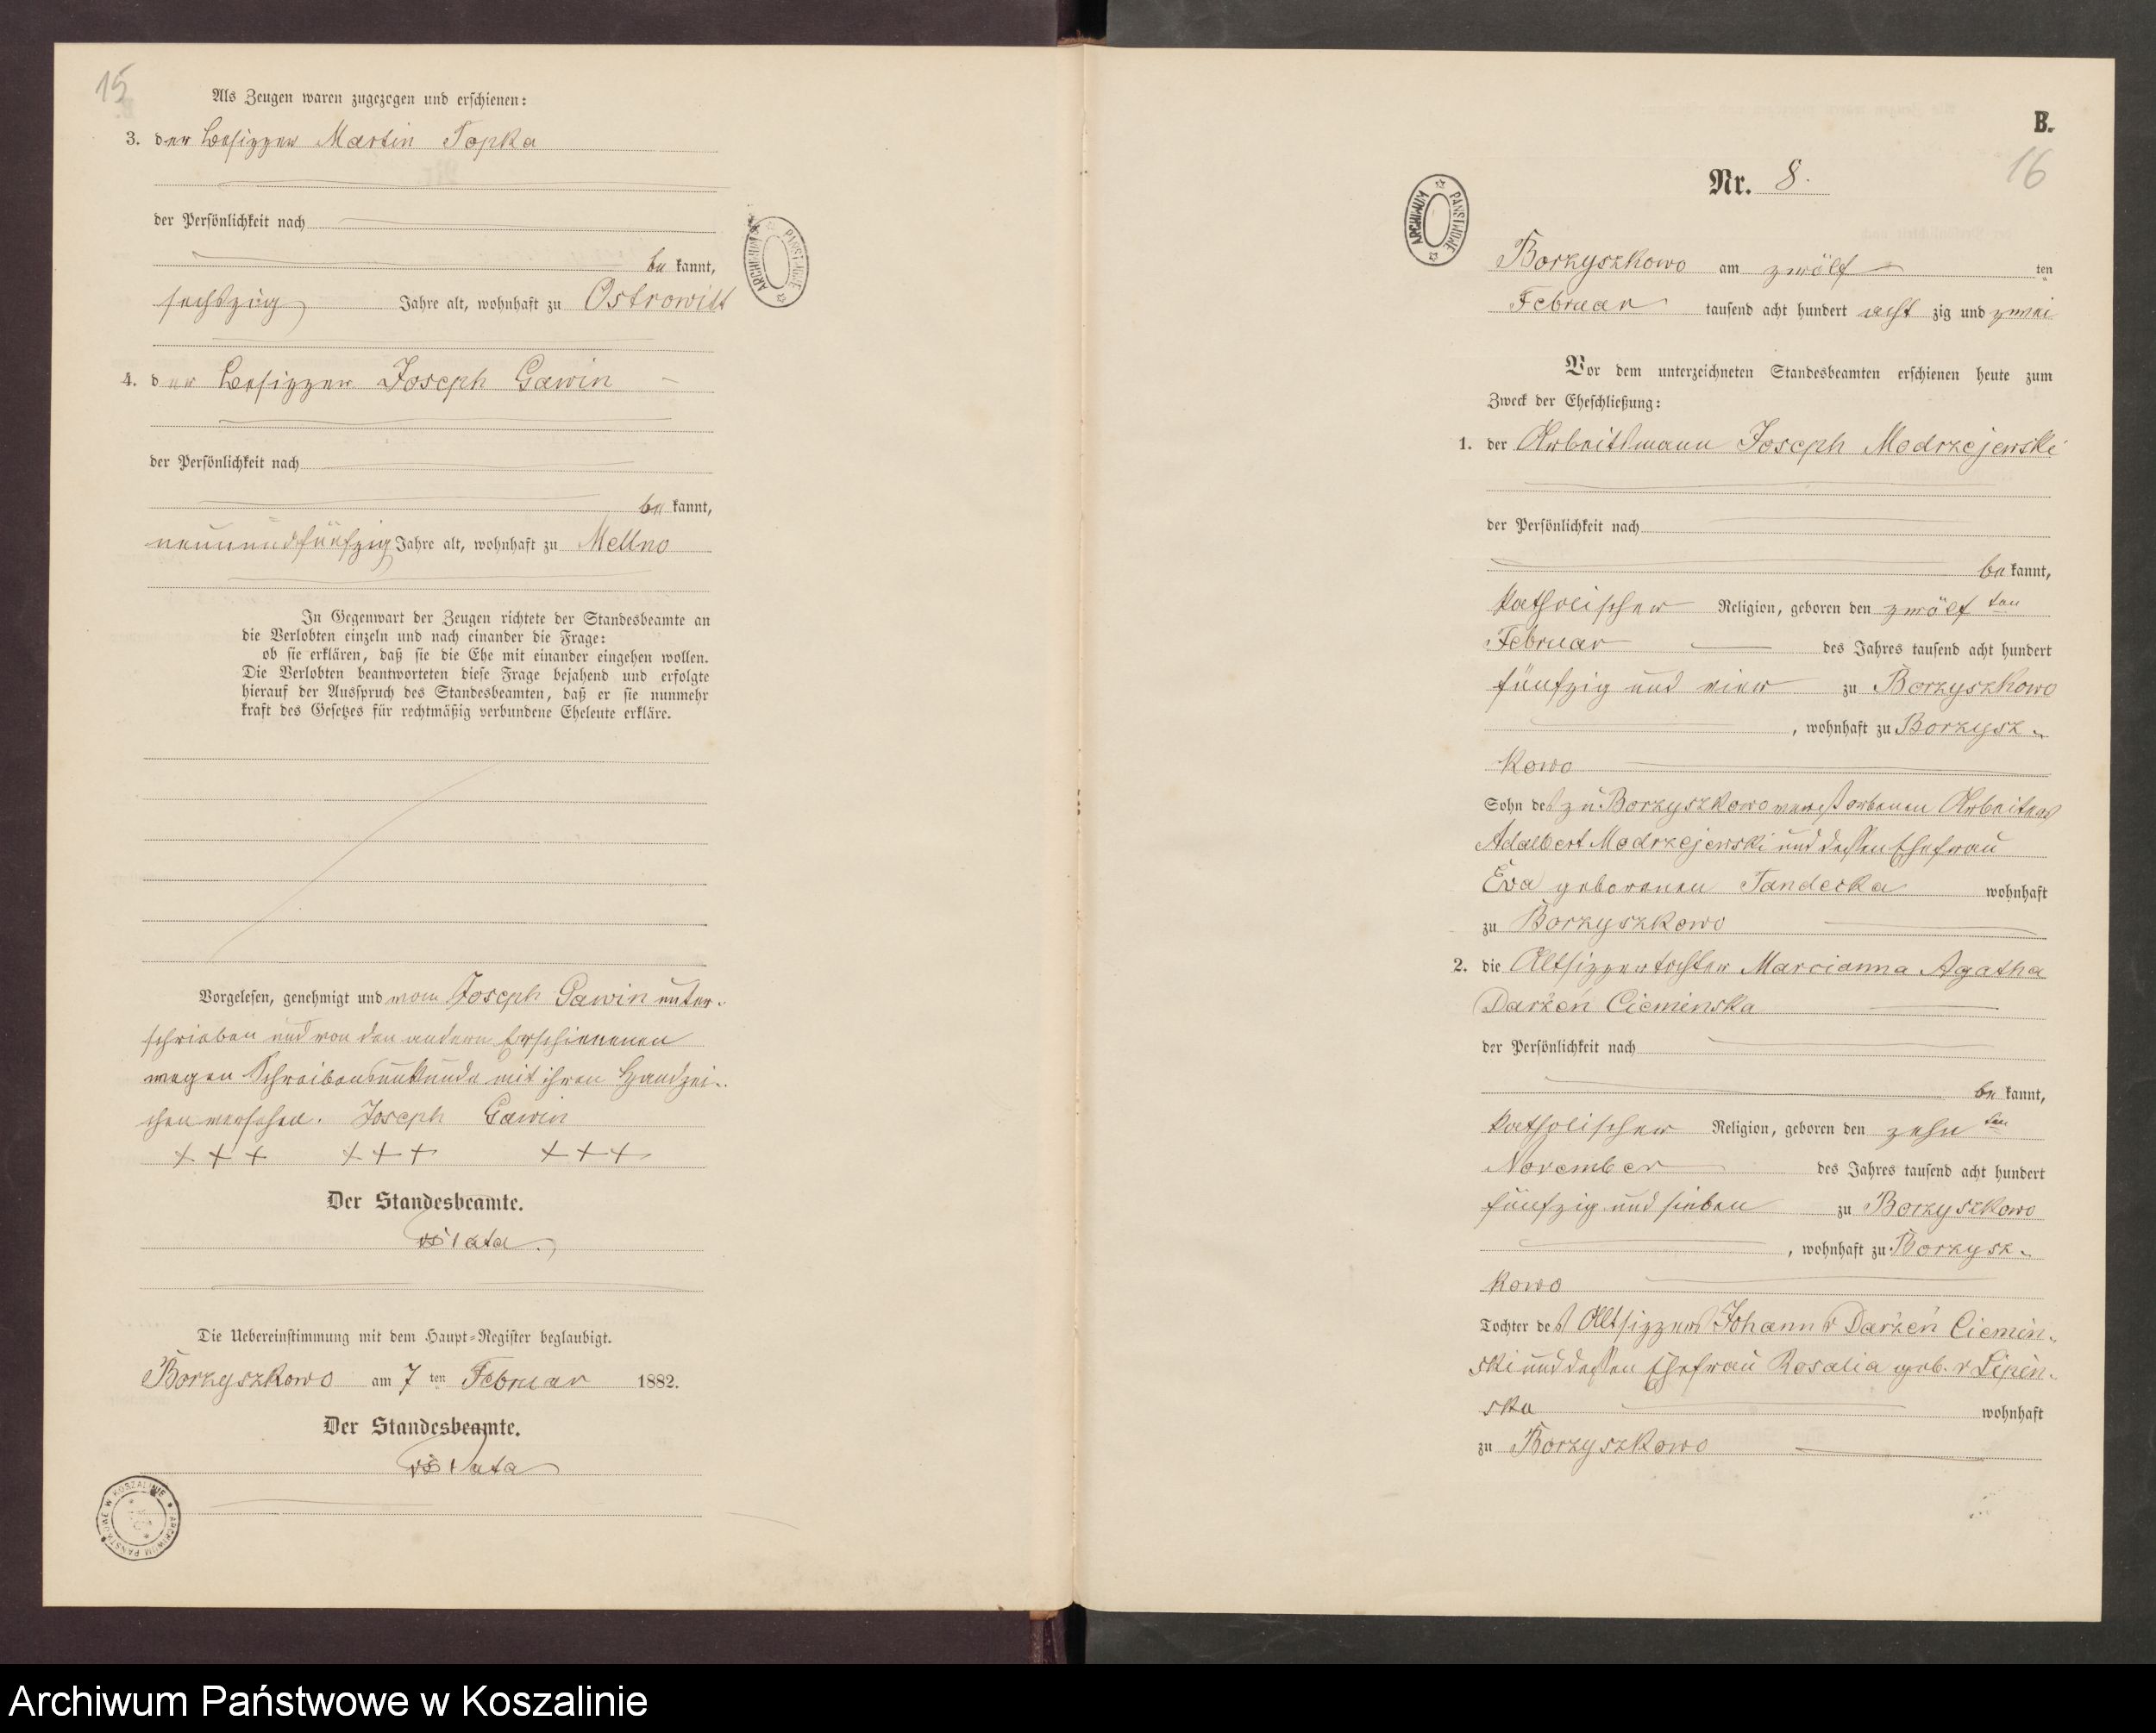 15
Als Zeugen waren zugezogen und erschienen:
3. der Besitzer Martin Topka
der Persönlichkeit nach
be kannt,
sechszig Jahre alt, wohnhaft zu Ostrowitt
4. der Besitzer Joseph Gawin
der Persönlichkeit nach
be kannt,
neunundfünfzig Jahre alt, wohnhaft zu Mellno
In Gegenwart der Zeugen richtete der Standesbeamte an
die Verlobten einzeln und nach einander die Frage:
ob sie erklären, daß sie die Ehe mit einander eingehen wollen.
Die Verlobten beantworteten diese Frage bejahend und erfolgte
hierauf der Ausspruch des Standesbeamten, daß er sie nunmehr
kraft des Gesetzes für rechtmäßig verbundene Eheleute erkläre.
Vorgelesen, genehmigt und vom Joseph Gawin unter-
schrieben und von den andern Erschienenen
wegen Schreibensunkunde mit ihren Handzei-
chen versehen. Joseph Gawin
+++ +++ +++
Der Standesbeamte.
Die Uebereinstimmung mit dem Haupt-Register beglaubigt.
Borzyszkowo am 7 ten Februar 1882.
Der Standesbeamte.
ARCHIWUM PAŃSTWOWE W KOSZALINIE
ARCHIWUM PAŃSTWOWE
B.
16
Nr. 8.
ARCHIWUM PAŃSTWOWE
Borzyszkowo am zwölf ten
Februar tausend acht hundert acht zig und zwei
Vor dem unterzeichneten Standesbeamten erschienen heute zum
Zweck der Eheschließung:
1. der Arbeitsmann Joseph Modrzejewski
der Persönlichkeit nach
be kannt,
katholischer Religion, geboren den zwölf ten
Februar des Jahres tausend acht hundert
fünfzig und vier zu Borzyszkowo
, wohnhaft zu Borzysz-
kowo
Sohn des zu Borzyszkowo verstorbenen Arbeiters
Adalbert Modrzejewski und dessen Ehefrau
Eva geborenen Tandecka wohnhaft
zu Borzyszkowo
2. die Altsitzertochter Marcianna Agatha
Darżeń Cieminska
der Persönlichkeit nach
be kannt,
katholischer Religion, geboren den zehn ten
November des Jahres tausend acht hundert
fünfzig und sieben zu Borzyszkowo
, wohnhaft zu Borzysz-
kowo
Tochter des Altsitzers Johann v Darżeń Ciemin-
ski und dessen Ehefrau Rosalia geb. v Lipin-
ska wohnhaft
zu Borzyszkowo
Archiwum Państwowe w Koszalinie